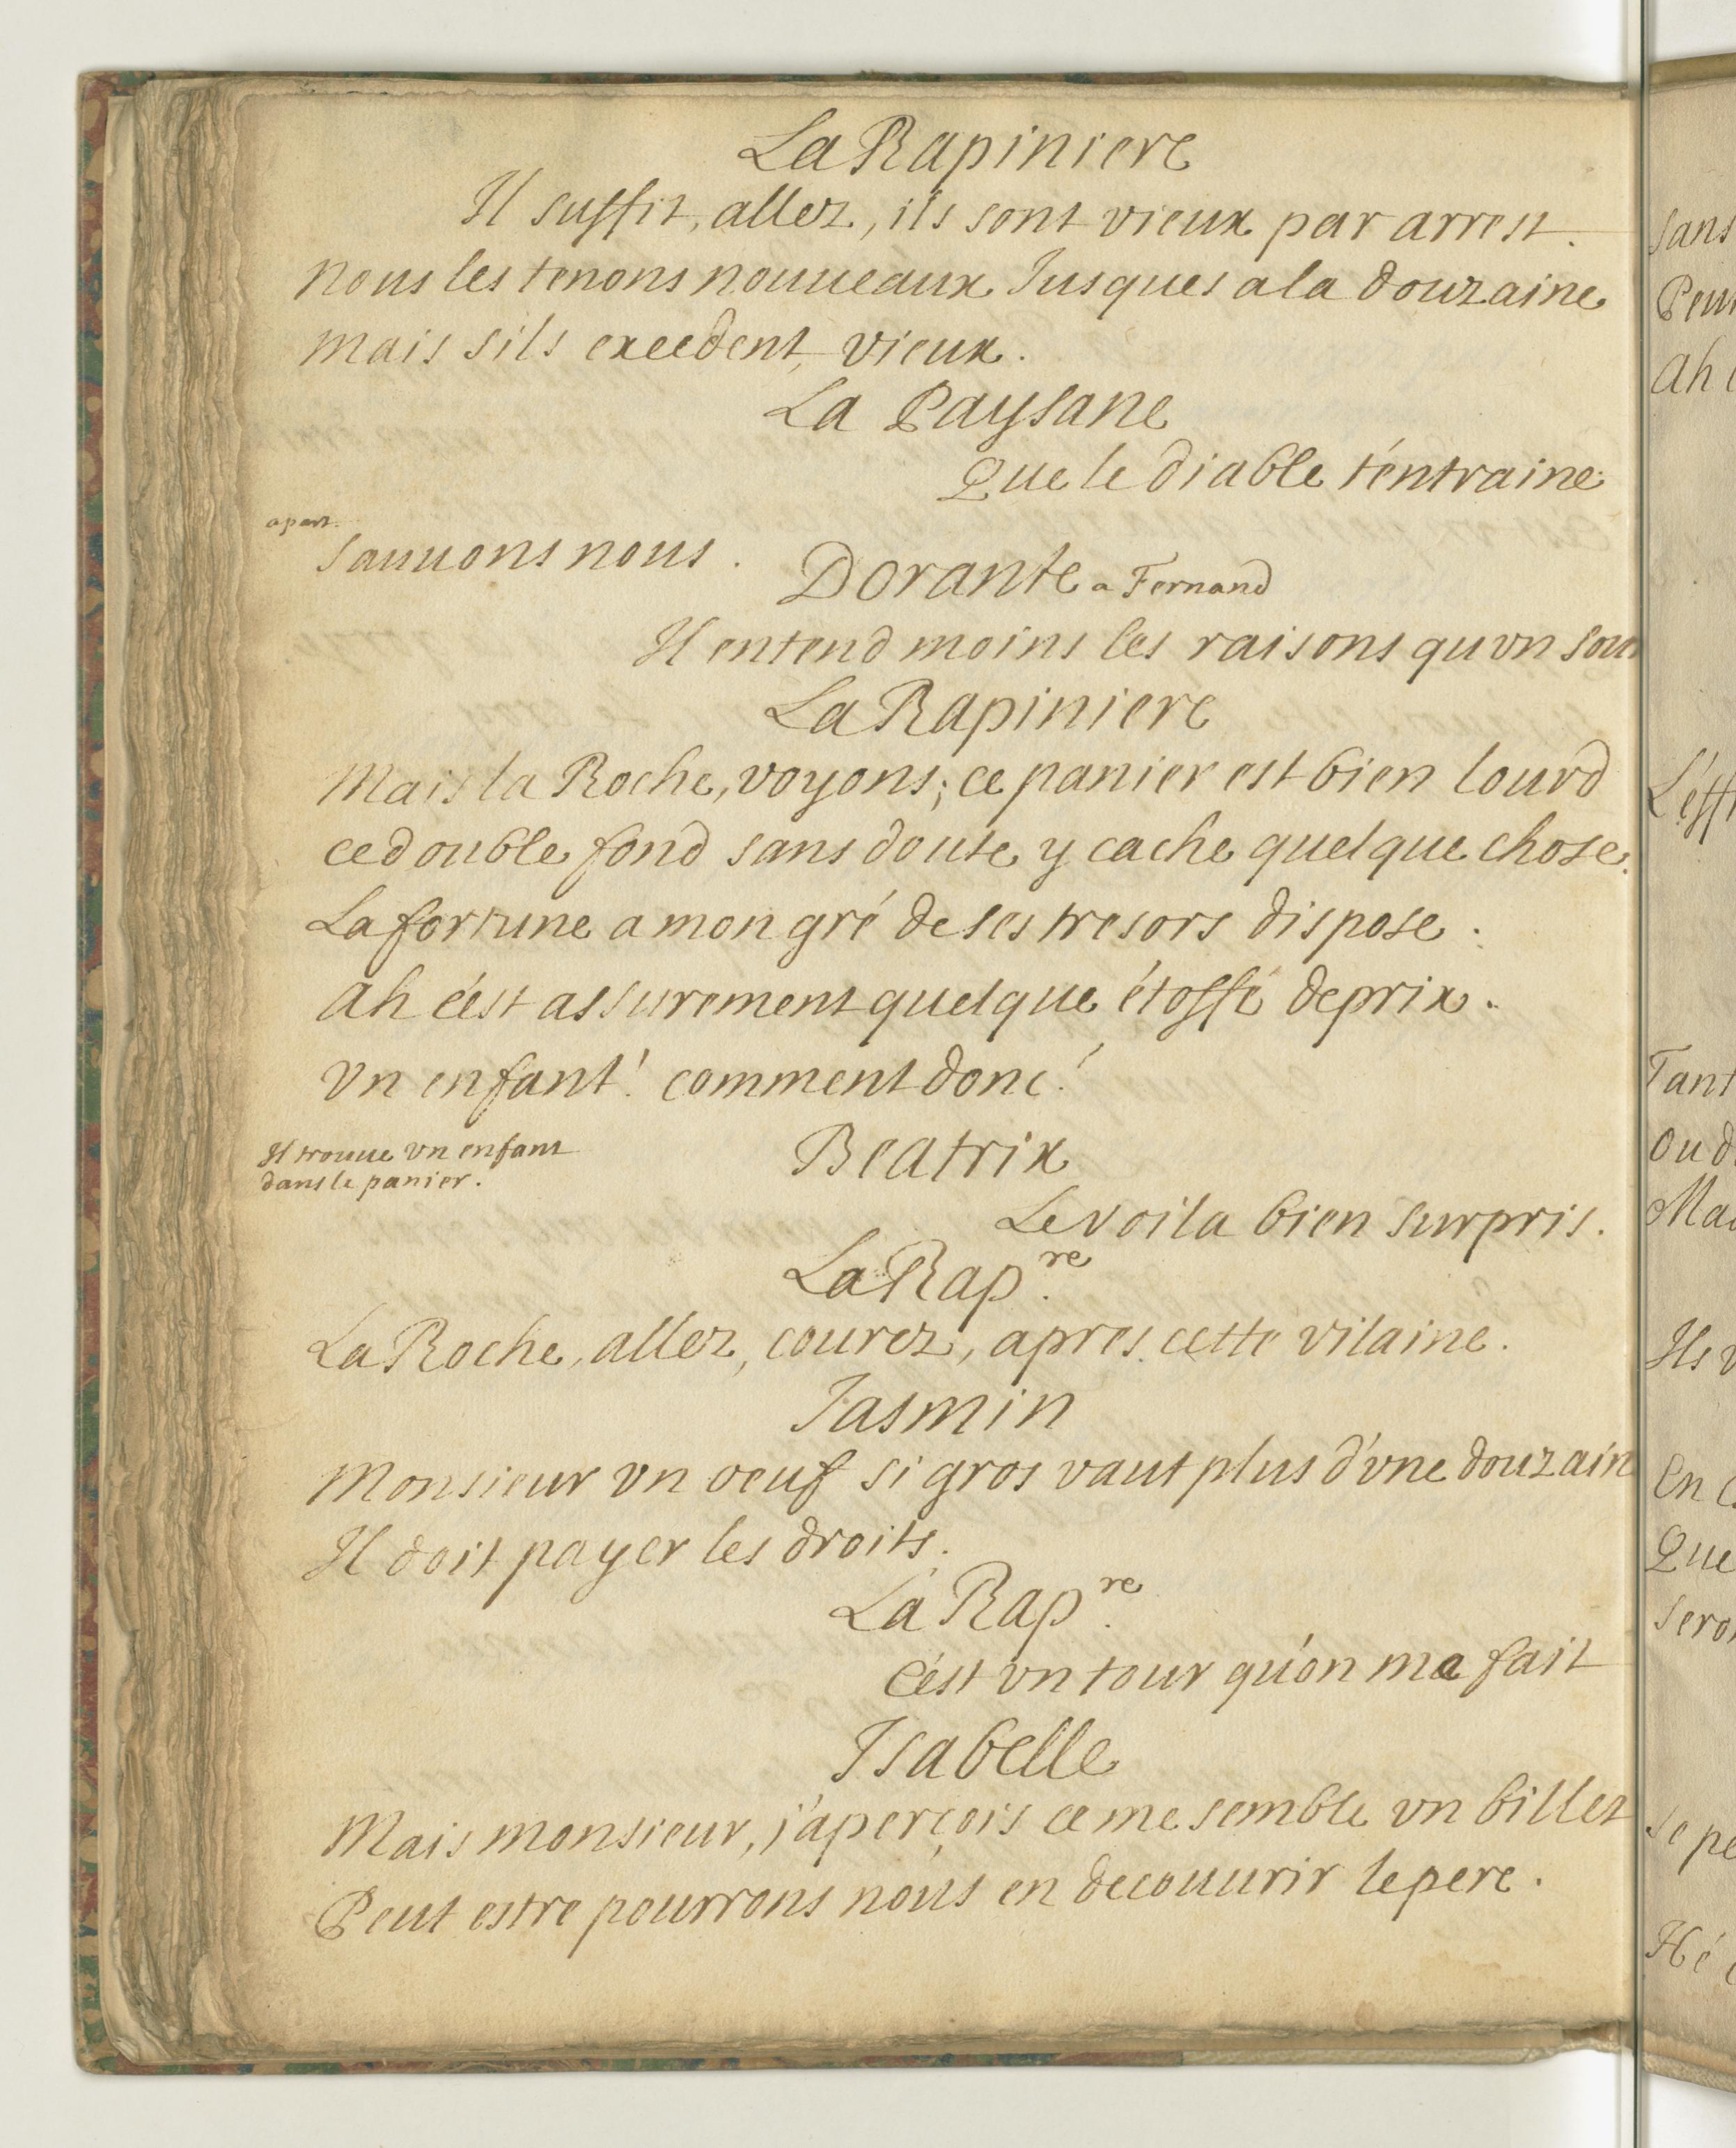 La Rapiniere
Il suffit, allez, ils sont vieux par arrest.
nous les tenons nouueaux Jusques a la douzaine
mais sils excedent, vieux.
La Paysane
Que le diable t'entraine
apart.
sauuons nous.
Dorante a Fernand
Il entend moins les raisons qu vn
La Rapiniere
Mais la Roche, voyons; ce panier est bien lourd
ce double fond sans doute y cache quelque chose.
La fortune a mon gré de ses tresors dispose.
ah c'est assurement quelque étoffe de prix.
Vn enfant! comment donc!
Il trouue vn enfant
dans le panier.
Beatrix
Le voila bien surpris.
La Rap.re
La Roche, allez, courez, apres cette vilaine.
Jasmin
Monsieur vn oeuf si gros vaut plus d'vne douzain
Il doit payer les droits.
La Rap.re
C'est vn tour qu'on ma fait
Isabelle
Mais monsieur, j'aperçois ce me semble vn billet
Peut estre pourrons nous en decouurir le pere.
sans
Ah
Tant
ou
En
Que